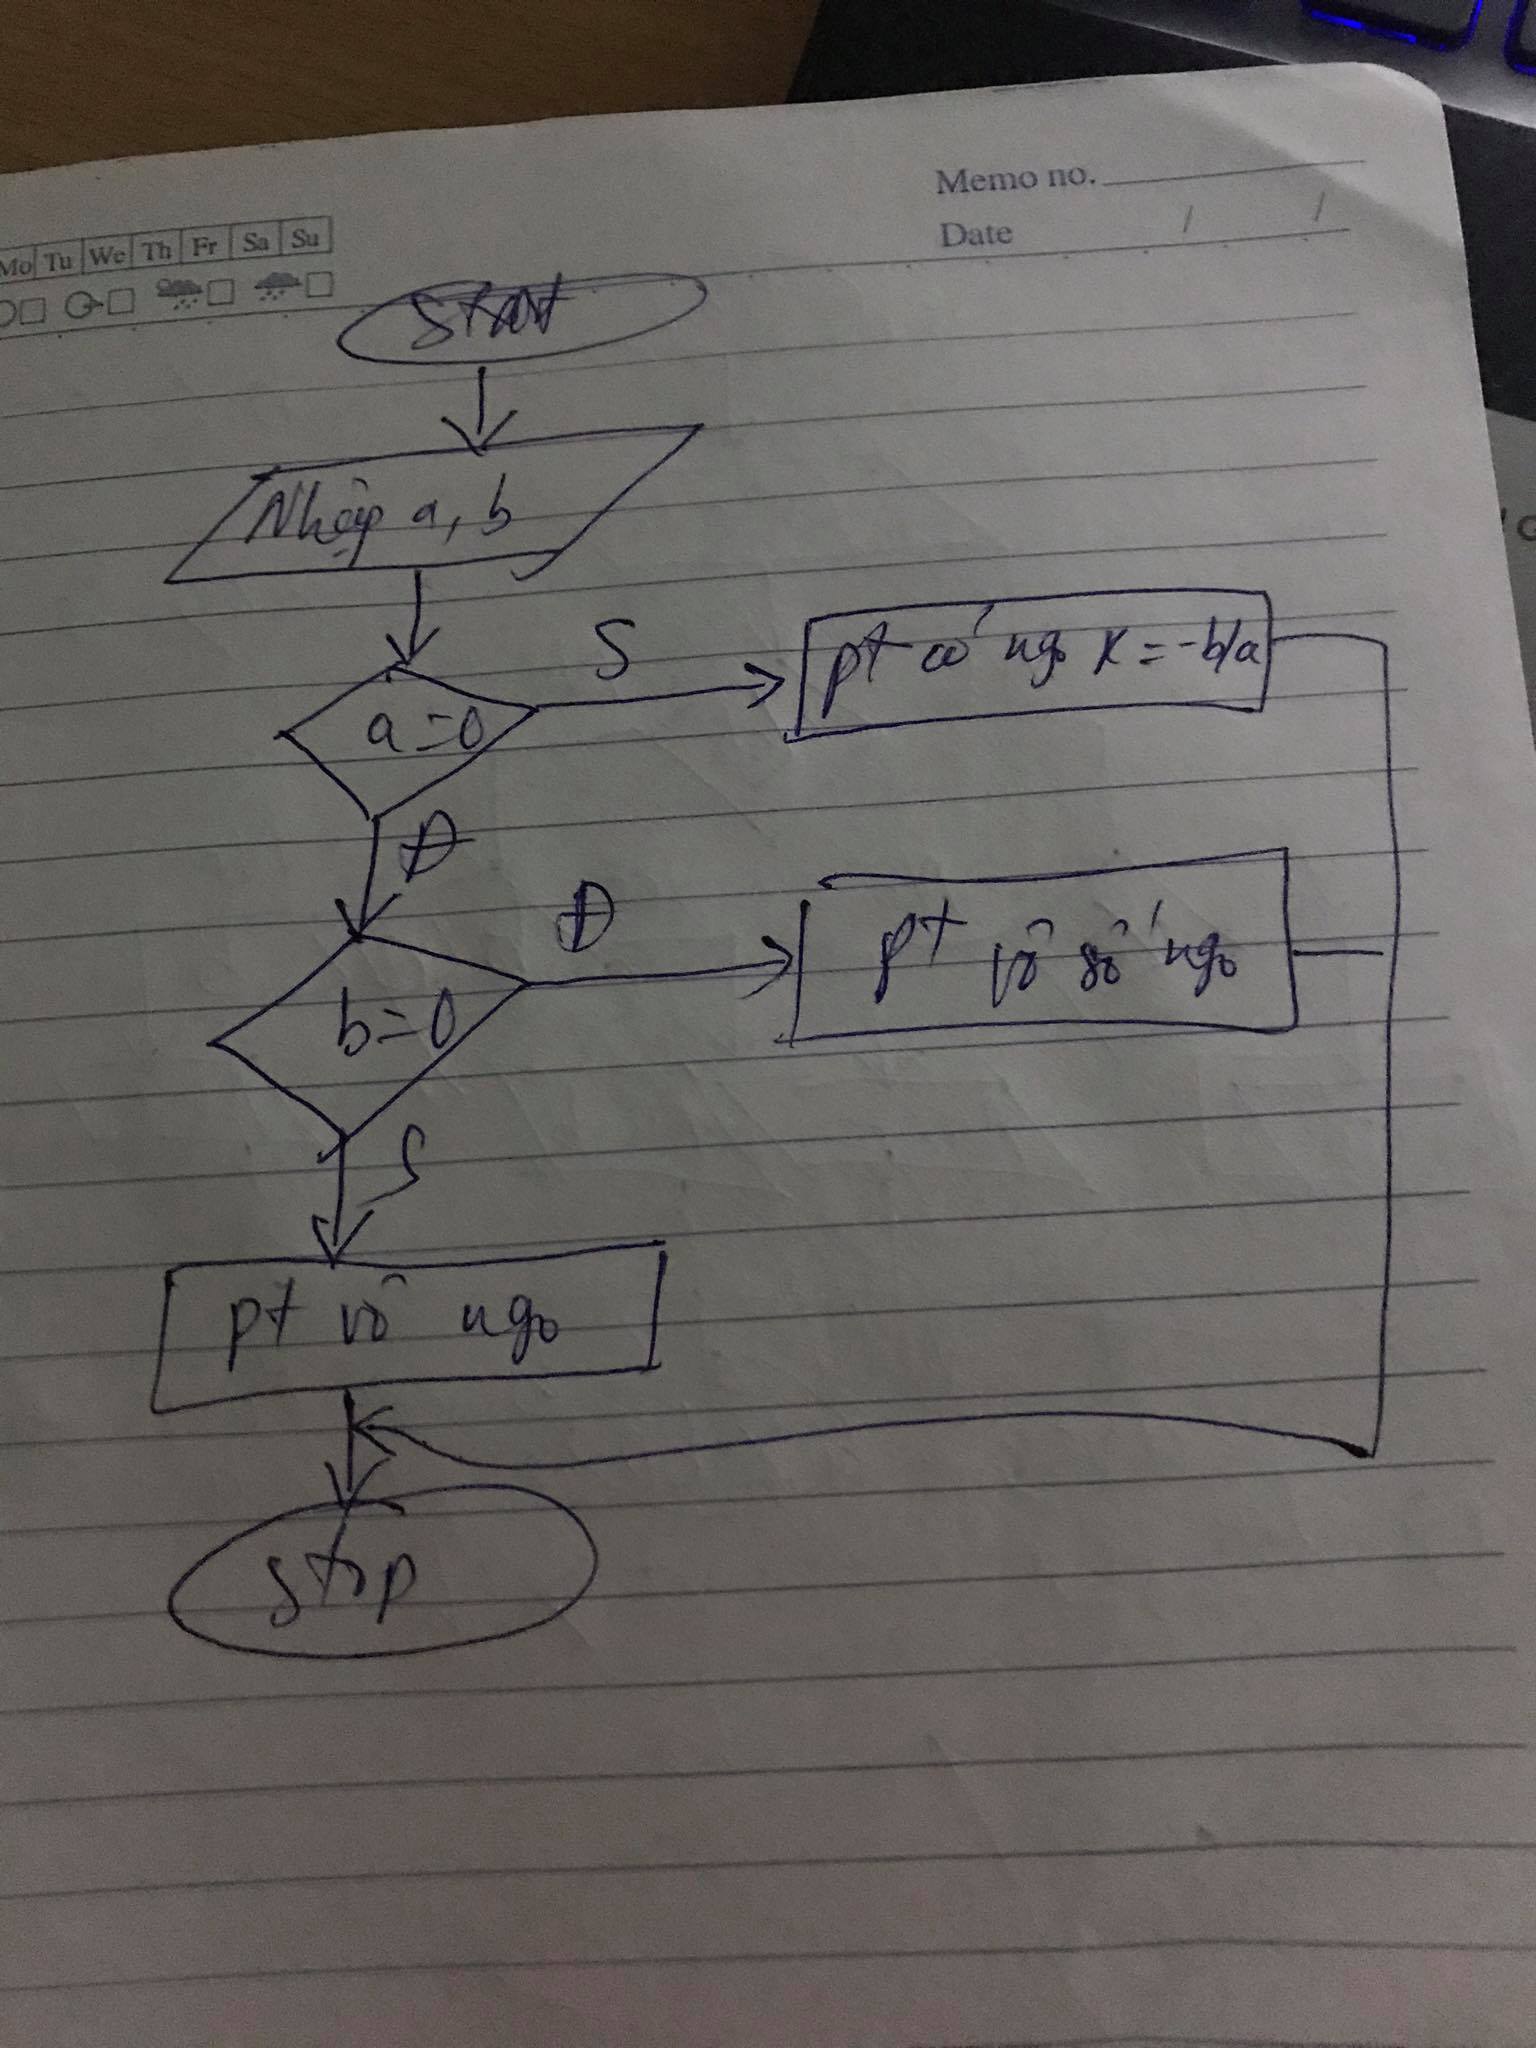 Memo no.
Date / /
Mo Tu We Th Fr Sa Su
Start
Nhập a, b
a=0
S
pt có ngo x = -b/a
Đ
b=0
Đ
pt vô số ngo
S
pt vô ngo
stop